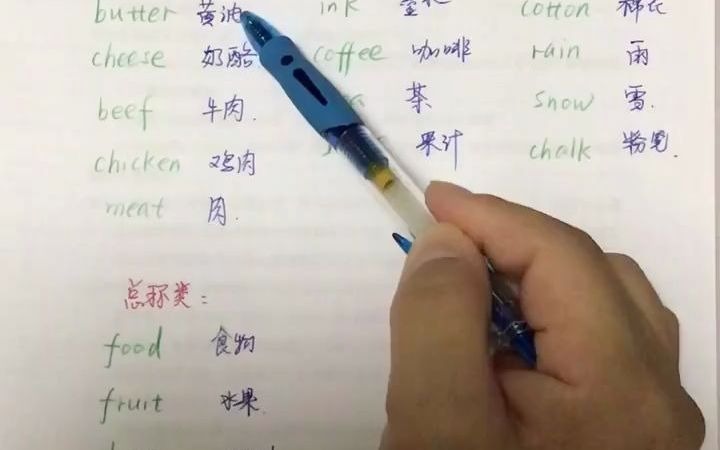 butter 黄油 ink cotton 棉花
cheese 奶酪 coffee 咖啡 rain 雨
beef 牛肉. 茶 snow 雪.
chicken 鸡肉 果汁 chalk 粉笔.
meat 肉.
总称类:
food 食物
fruit 水果